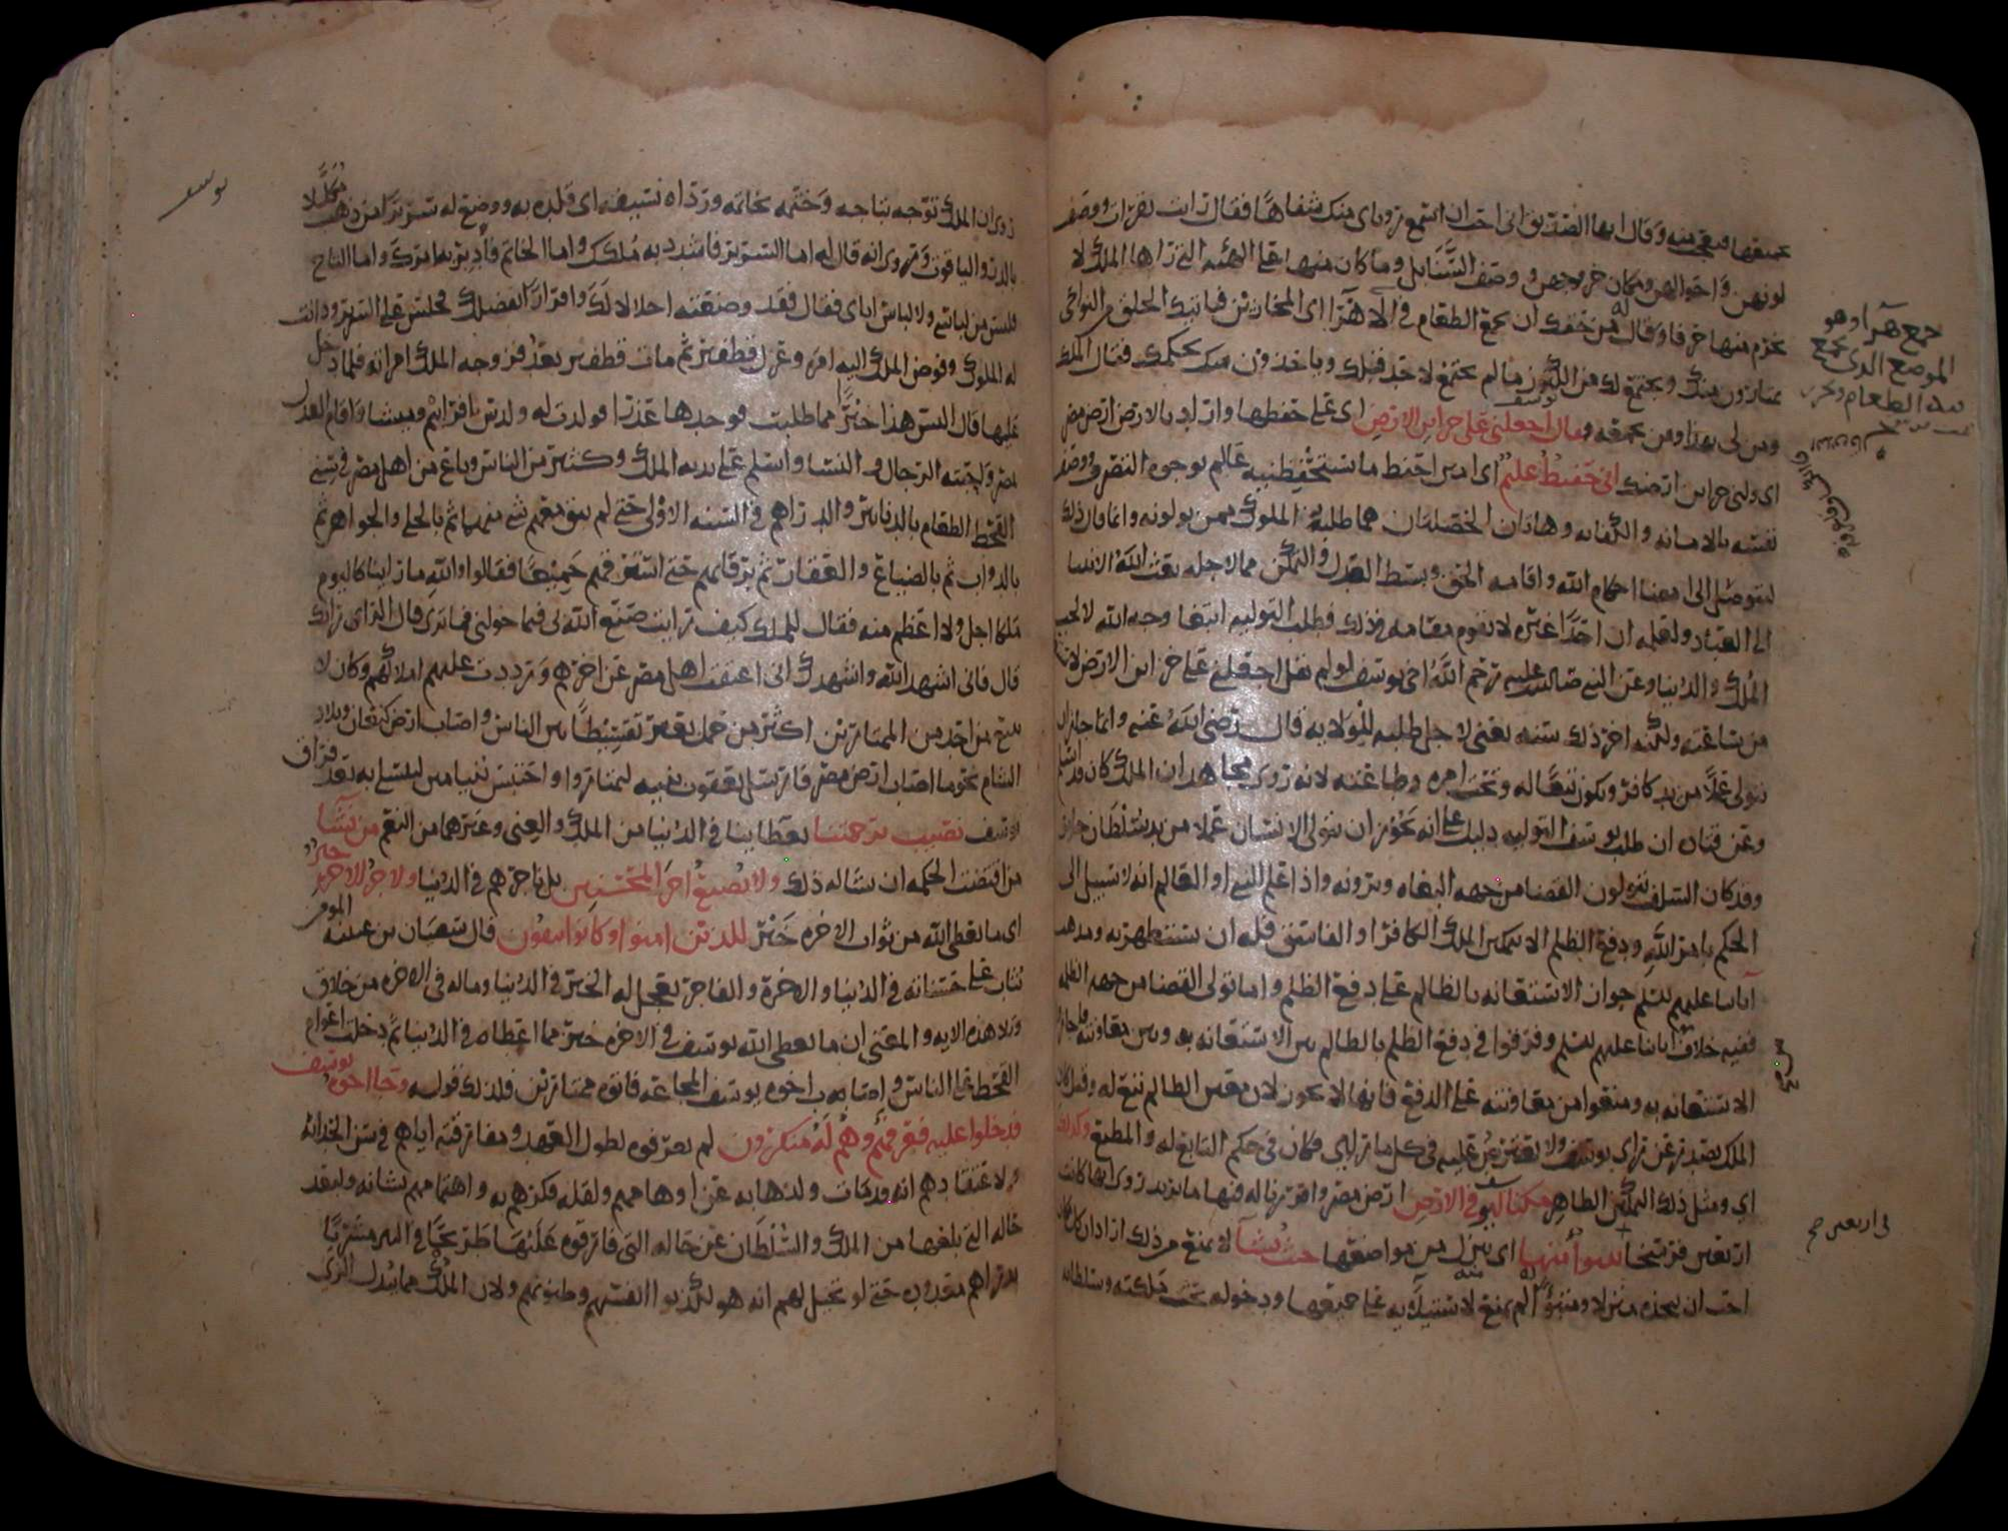 جميعها فتعجب منه وقال ايها الصديق اني احب ان اسمع رؤياي منك شفاها فقال رايت بقرات ووصف
لونهن واحوالهن ومكان خروجهن ووصف السنابل وما كان منها على الهيئة التي راها الملك لا
يخرم منها حرفا وقال له من حقك ان تجمع الطعام في الاهرا اي المخازين فياتيك الخلق من النواحي
يمتارون منك ويجتمع لك من الكنوز ما لم يجتمع لاحد قبلك وياخذون منك بحكمك فقال الملك
ومن لي بهذا ومن يجمعه و قال يوسف اجعلني على خزائن الارض اي على حفظها واراد بالارض ارض مصر
اي ولني خزاين ارضك اني حفيظ عليم اي امين احفظ ما تستحفظنيه عالم بوجوه التصرف ووصف
نفسه بالامانه والكفايه وهاتان الخصلتان هما طلبة الملوك ممن يولونه وانما قال ذلك
ليتوصل الى امضا احكام الله واقامه الحق وبسط العدل والتمكن مما لاجله بعث الله الانبيا
الى العباد ولعلمه ان احدا غيره لا يقوم مقامه في ذلك فطلب التوليه ابتغا وجه الله لا لحب
الملك والدنيا وعن النبي صلى الله عليه رحم الله اخي يوسف لو لم يقل اجعلني على خزاين الارض
من ساعته ولكنه اخر ذلك سنه يعني لاجل طلبه للولايه قال رضي الله عنه وانما جاز ان
يتولى عملا من يد كافر ويكون تبعا له وتحت امره وطاعته لانه روى مجاهد ان الملك كان قد اسلم
وعن قتاده ان طلب يوسف التوليه دليل على انه يجوز ان يتولى الانسان عملا من يد سلطان جاير
وقد كان السلف يتولون القضا من جهه البغاه ويرونه واذا علم النبي او العالم انه لا سبيل الى
الحكم بامر الله ودفع الظلم الا بتمكين الملك الكافر او الفاسق فله ان يستظهر به ومذهب
ابائنا عليهم السلم جواز الاستعانه بالظالم على دفع الظلم واما تولي القضا من جهه الظلمه
ففيه خلاف ابائنا عليهم السلم وفرقوا في دفع الظلم بالظالم بين الاستعانه به وبين معاونته
الاستعانه به ومنعوا من معاونته على الدفع فانها لا تجوز لان معين الظالم تبع له وقيل كان
الملك يصدر عن راي يوسف ولا يعترض عليه في كل ما راى فكان في حكم التابع له والمطيع وكذلك
اي ومثل ذلك التمكين الظاهر مكنا ليوسف في الارض ارض مصر واقررناه فيها ما يريد روي انها كانت
اربعين فرسخا يتبوا منها اي ينزل من مواضعها حيث يشآ لا يمنع من ذلك اذا اراد كل مكان
احب ان يتخذه منزلا ومتبوا له لم يمنع منه لاستيلائه على جميعها ودخوله تحت ملكته وسلطانه
جمع هرا وهو
الموضع الذي يجمع
فيه الطعام
في اربعين صح
يوسف
روي ان الملك توجه بتاجه وختمه بخاتمه ورداه بسيفه اي قلده به ووضع له سريرا من ذهب مكللا
بالدر والياقوت وروي انه قال له اما السرير فاشد به ملكك واما الخاتم فادبر به امرك واما التاج
فليس من لباسي ولا لباس اباي فقال فقد وضعته اجلالا لك واقرارا بفضلك فجلس على السرير ودانت
له الملوك وفوض الملك اليه امره وعزل قطفير ثم مات قطفير بعد فزوجه الملك امراته فلما دخل
عليها قال اليس هذا خيرا مما طلبت فوجدها عذرا فولدت له ولدين افرائيم وميشا واقام العدل
بمصر واحبته الرجال والنسا واسلم على يديه الملك وكثير من الناس وباع من اهل مصر في سني
القحط الطعام بالدنانير والدراهم في السنه الاولى حتى لم يبق معهم شي منها ثم بالحلي والجواهر ثم
بالدواب ثم بالضياع والعقار ثم برقابهم حتى استرقهم جميعا فقالوا والله ما راينا كاليوم
ملكا اجل ولا اعظم منه فقال للملك كيف رايت صنع الله لي فيما خولني فما ترى قال الراي رايك
قال فاني اشهد الله واشهدك اني اعتقت اهل مصر عن اخرهم ورددت عليهم املاكهم وكان لا
يبيع من احد من الممتارين اكثر من حمل بعير تقسيطا بين الناس واصاب ارض كنعان وبلاد
الشام نحو ما اصاب ارض مصر فارسل يعقوب بنيه ليمتاروا واحتبس بنيامين ليتسلى به بعد فراق
يوسف نصيب برحمتنا بعطاينا في الدنيا من الملك والغنى وغيرهما من النعم من نشآ
من اقتضت الحكمه ان يشا له ذلك ولا نضيع اجر المحسنين بل ناجرهم في الدنيا ولاجر الاخره خير
اي ما يعطي الله من ثواب الاخره خير للذين امنوا وكانوا يتقون قال سفيان بن عيينه المومن
يثاب على حسناته في الدنيا والاخرة والفاجر يعجل له الخير في الدنيا وماله في الاخره من خلاق
وتلا هذه الايه والمعنى ان ما يعطي الله يوسف في الاخره خير مما اعطاه في الدنيا ثم دخلت اعوام
القحط على الناس واصابت اخوه يوسف المجاعه فاتوه ممتارين فلذلك قوله وجا اخوة يوسف
فدخلوا عليه فعرفهم وهم له منكرون لم يعرفوه لطول العهد ومفارقته اياهم في سن الحداثه
ولاعتقادهم انه قد مات ولذهابه عن اوهامهم ولقله فكرهم به واهتمامهم بشانه ولبعد
حاله التي بلغها من الملك والسلطان عن حاله التي فارقوه عليها طريحا في البير مشريا
بدراهم معدوده حتى لو تخيل لهم انه هو لكذبوا انفسهم وظنونهم ولان الملك مما يبدل الزي